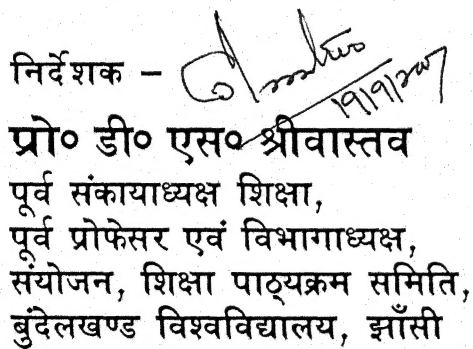 निर्देशक –
प्रो० डी० एस० श्रीवास्तव
पूर्व संकायाध्यक्ष शिक्षा,
पूर्व प्रोफेसर एवं विभागाध्यक्ष,
संयोजन, शिक्षा पाठ्यक्रम समिति,
बुंदेलखण्ड विश्वविद्यालय, झाँसी